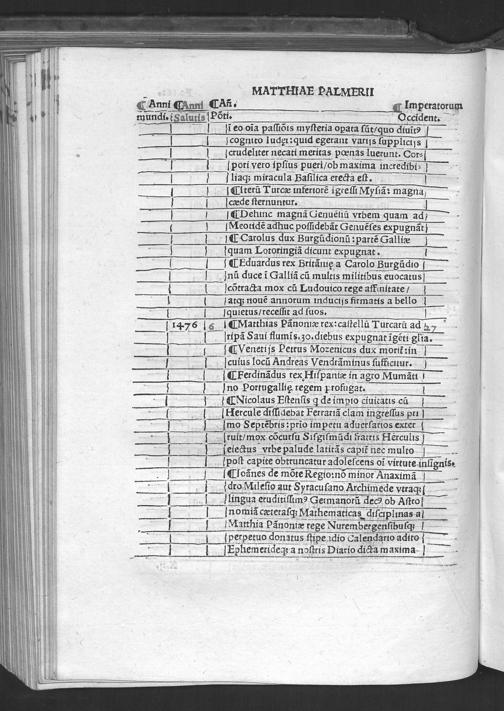 MATTHIAE PALMERII
¶ Anni ¶Anni ¶Añ. ¶ Imperatorum
mundi. Salutis Põti. Occident.
ĩ eo oĩa passiõis mysteria opata sũt/quo diuitꝰ
cognito ludei: quid egerant varijs supplicijs
crudeliter necati meritas pœnas luerunt. Cor⸗
pori vero ipsius pueri/ob maxima incredibi⸗
liaq; miracula Basilica erecta est.
¶Iterũ Turcæ inferiorē ĩgressi Mysiã: magna
cæde sternuntur.
¶Dehinc magnã Genuēsiũ vrbem quam ad
Meotidē adhuc possidebãt Genuēses expugnãt
¶ Carolus dux Burgũdionũ: partē Galliæ
quam Lotoringiã dicunt expugnat.
¶Eduardus rex Britãniæ a Carolo Burgũdio
nũ duce ĩ Galliã cũ multis militibus euocatus
cõtracta mox cũ Ludouico rege affinitate/
atq; nouē annorum inducijs firmatis a bello
quietus/recessit ad suos.
1476 6 ¶Matthias Pãnoniæ rex: castellũ Turcarũ ad 37
ripã Saui flumĩs.30. diebus expugnat ĩgēti glĩa.
¶Venetijs Petrus Mozenicus dux moriť: in
cuius locũ Andreas Vendrãminus sufficitur.
¶Ferdinãdus rex Hispaniæ in agro Mumãti
no Portugalliæ regem ꝓfugat.
¶Nicolaus Estensis q de impio ciuitatis cũ
Hercule dissidebat Ferrariã clam ingressus pri
mo Septēbris: prio impetu aduersarios exter
ruit/mox cõcursu Sigismũdi fratris Herculis
eiectus vrbe palude latitãs capiť nec multo
post capite obtruncatur adolescens oĩ virtute insignis.
¶Ioãnes de mõte Regio: nõ minor Anaximã
dro Milesio aut Syracusano Archimede vtraq;
lingua eruditissimꝰ Germanorũ decꝰ ob Astro
nomiã cæterasq; Mathematicas disciplinas a
Matthia Pãnoniæ rege Nurembergensibusq;
perpetuo donatus stipēdio Calendario ædito
Ephemerideq; a nostris Diario dicta maxima